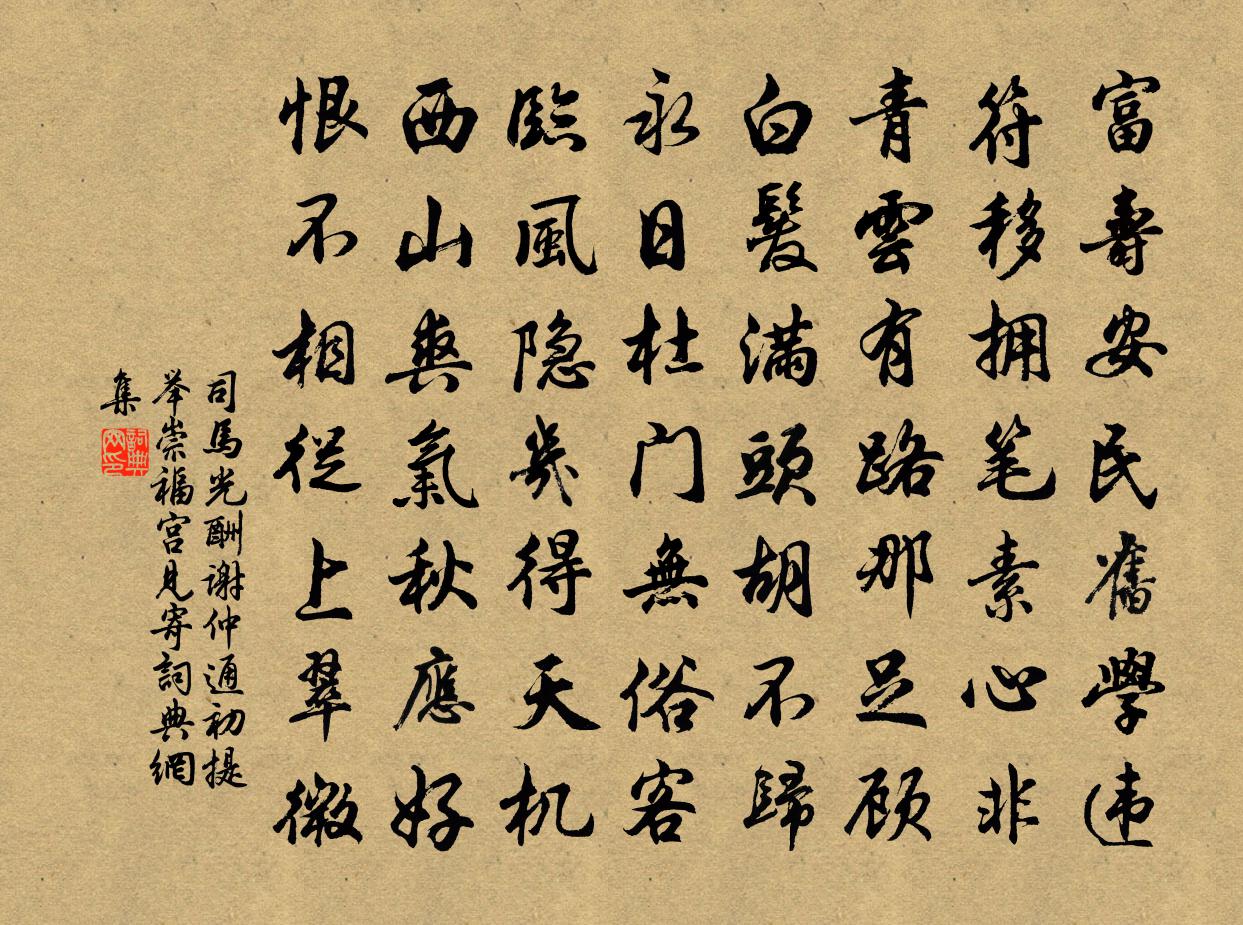 富壽安民舊學违
符移拥笔素心非
青雲有路那足顾
白髮满頭胡不歸
永日杜门無俗客
臨風隐幾得天机
西山爽氣秋應好
恨不相從上翠微
司馬光酬谢仲通初提
举崇福宫见寄詞典網
集
詞典网印